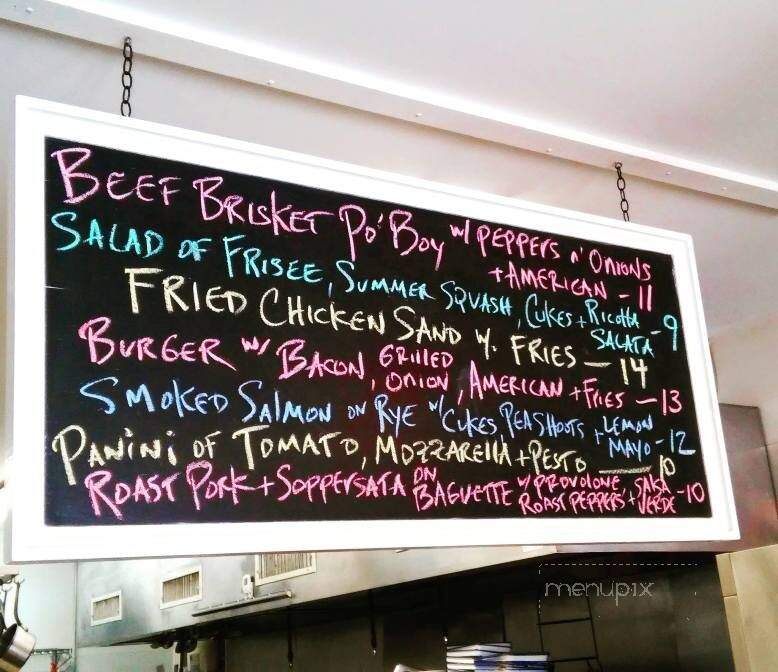 BEEF BRISKET PO'BOY W/ PEPPERS n' ONIONS
+ AMERICAN - 11
SALAD OF FRISEE, SUMMER SQUASH, CUKES + RICOTTA
SALATA - 9
FRIED CHICKEN SAND W. FRIES - 14
BURGER W/ BACON, GRILLED
ONION, AMERICAN + FRIES - 13
SMOKED SALMON ON RYE W/ CUKES PEASHOOTS + LEMON
MAYO - 12
PANINI OF TOMATO, MOZZARELLA + PESTO — 10
ROAST PORK + SOPPERSATA ON
BAGUETTE W/ PROVOLONE, SALSA
ROAST PEPPERS + VERDE - 10
menupix